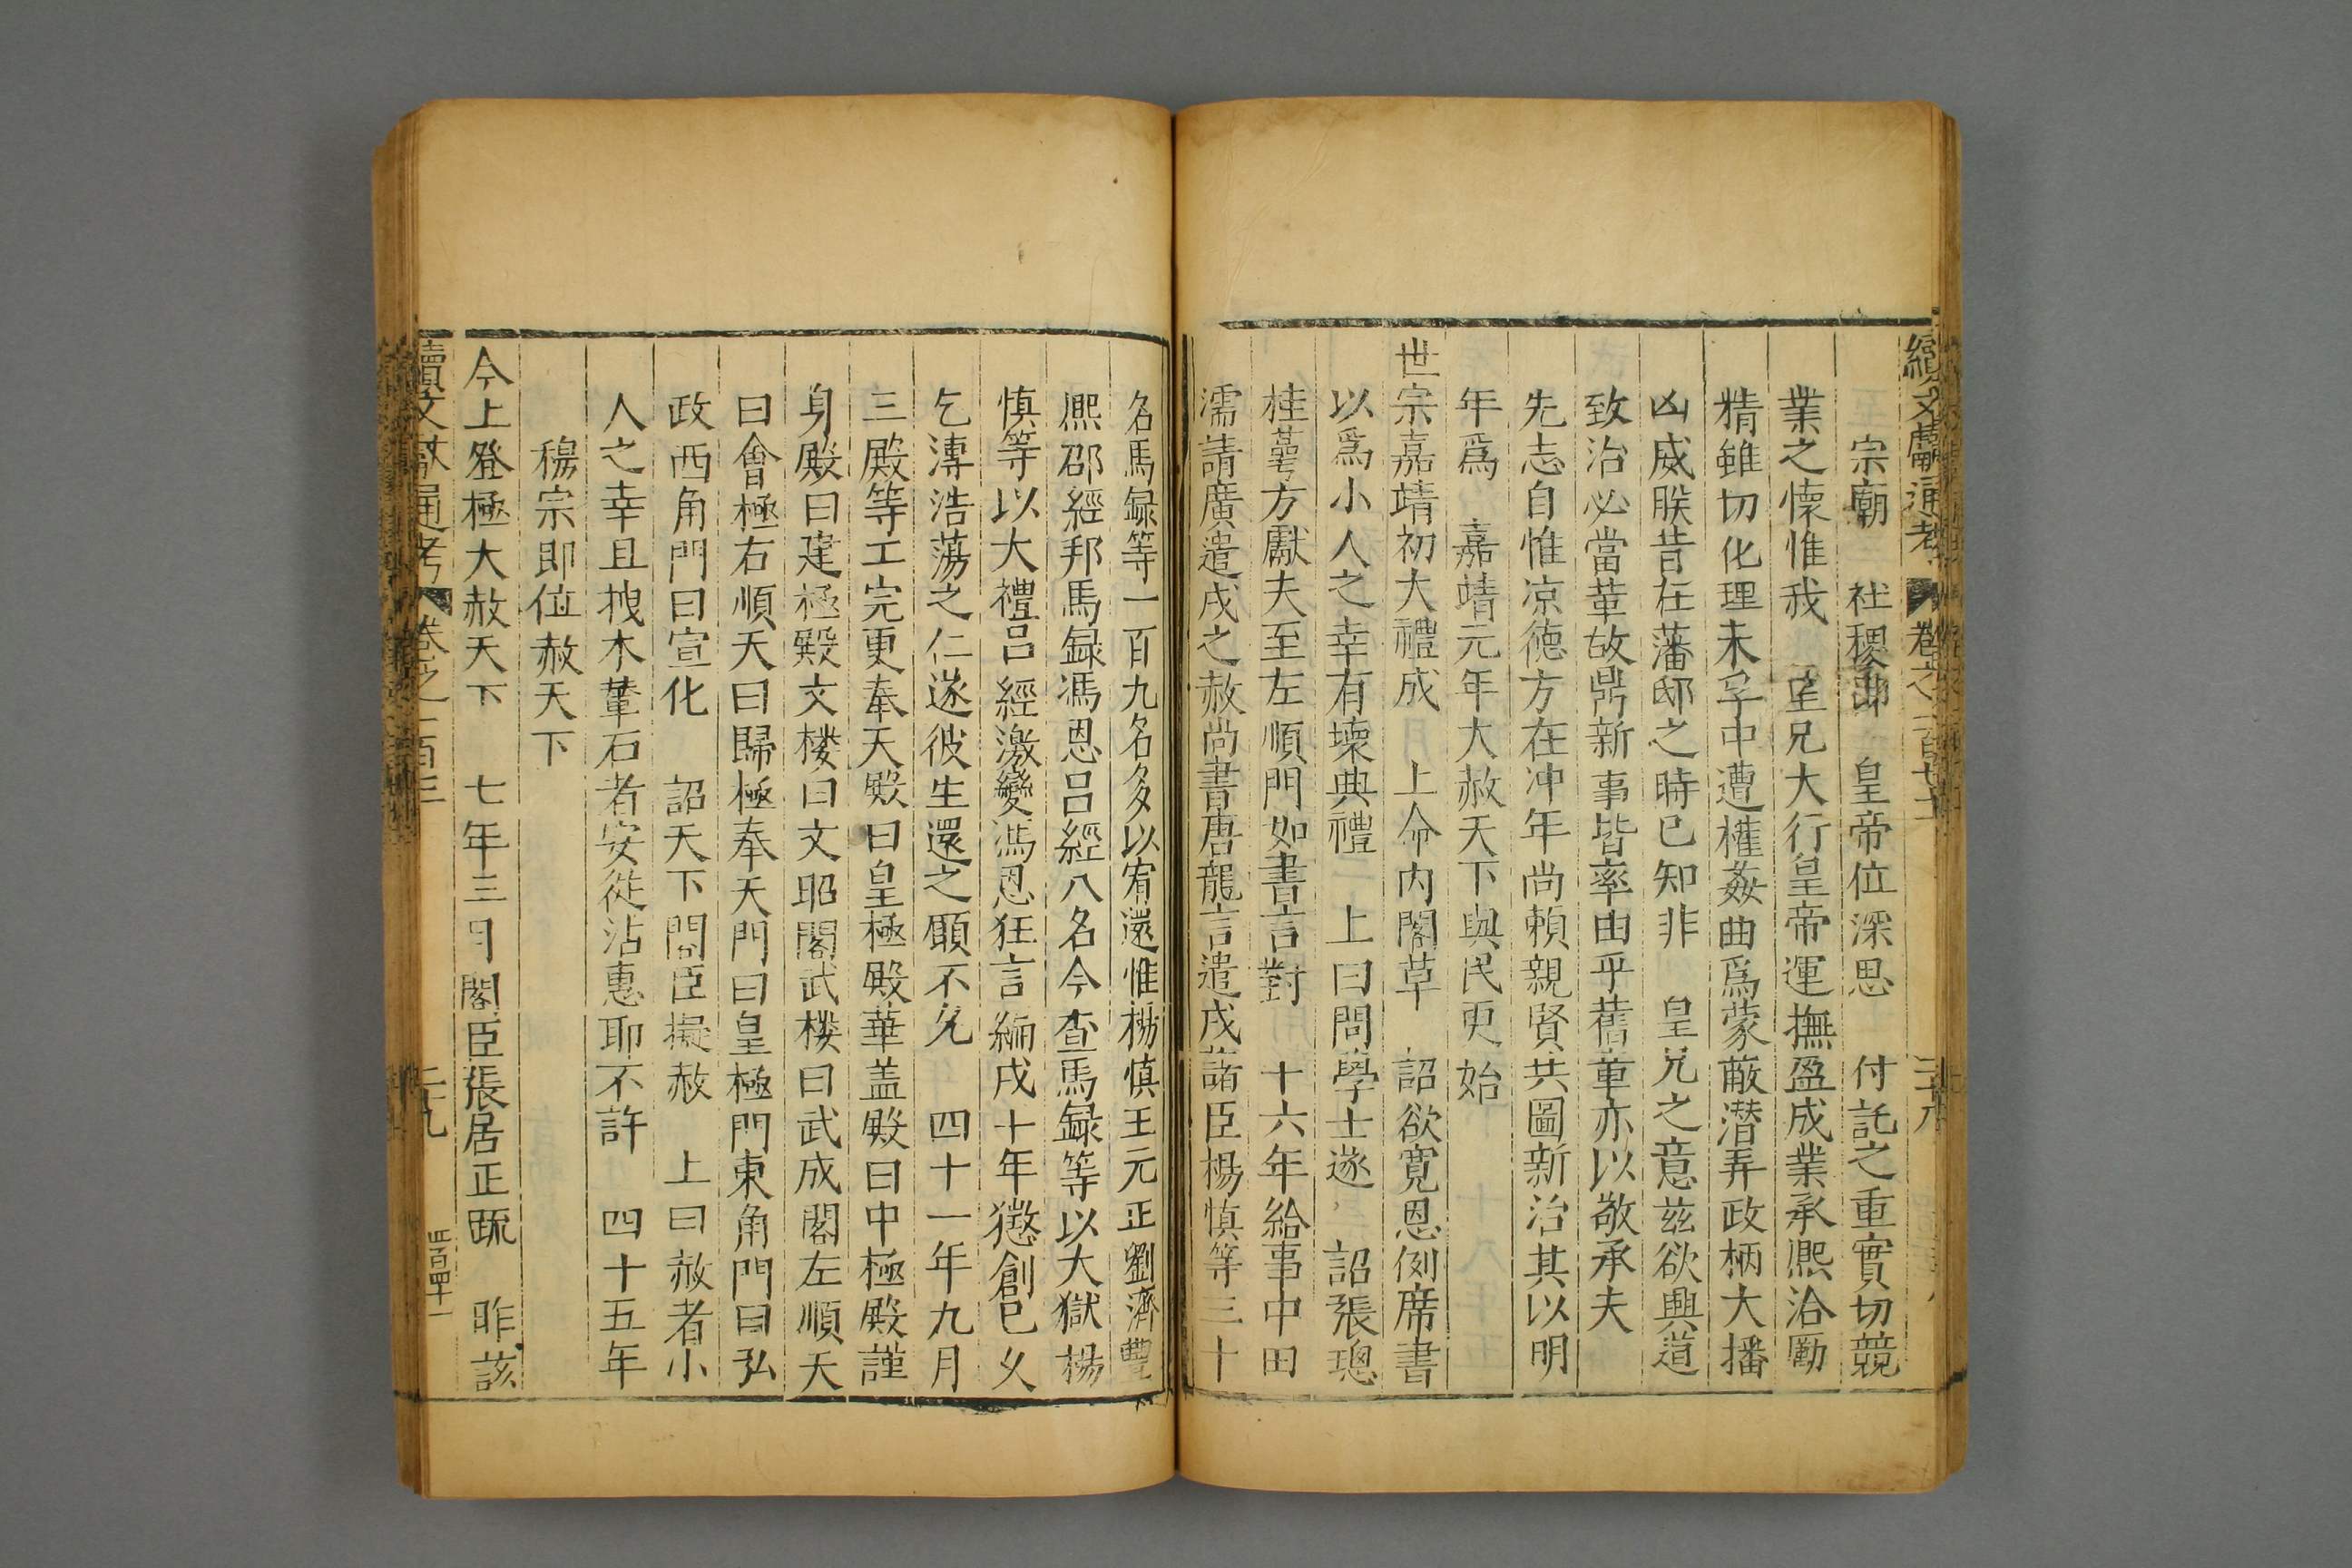 續文獻通考 卷之二百 三十八
宗廟 社稷即 皇帝位深思 付託之重實切競
業之懷惟我 皇兄大行皇帝運撫盈成業承熙洽勵
精雖切化理未孚中遭權姦曲爲蒙蔽潜弄政柄大播
凶威朕昔在藩邸之時已知非 皇兄之意兹欲興道
致治必當革故鼎新事皆率由乎舊章亦以敬承夫
先志自惟凉德方在冲年尚賴親賢共圖新治其以明
年爲 嘉靖元年大赦天下與民更始
世宗嘉靖初大禮成 上命内閣草 詔欲寛恩例席書
以爲小人之幸有壞典禮 上曰問學士遂 詔張璁
桂蕚方獻夫至左順門如書言對 十六年給事中田
濡請廣遣戍之赦尚書唐龍言遣戍諸臣楊慎等三十
名馬録等一百九名多以宥還惟楊慎王元正劉濟豐
熙邵經邦馬録馮恩呂經八名今查馬録等以大獄楊
慎等以大禮呂經激變馮恩狂言緬戍十年懲創已乆
乞溥浩蕩之仁遂彼生還之願不允 四十一年九月
三殿等工完更奉天殿曰皇極殿華盖殿曰中極殿謹
身殿曰建極殿文楼曰文昭閣武楼曰武成閣左順天
曰會極右順天曰歸極奉天門曰皇極門東角門曰弘
政西角門曰宣化 詔天下閣臣擬赦 上曰赦者小
人之幸且拽木輦石者安從沾惠耶不許 四十五年
穆宗即位赦天下
今上登極大赦天下 七年三月閣臣張居正疏 昨該
續文獻通考 卷之二百 三十九